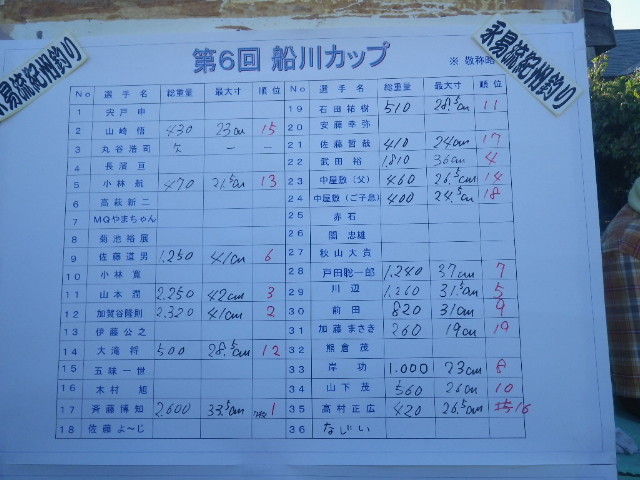 第6回 船川カップ
※ 敬称略
永易流紀州釣り
永易流紀州釣り
No 選手名 総重量 最大寸 順位
1 宍戸申
2 山崎悟 430 23cm 15
3 丸谷浩司 欠 － －
4 長濱亘
5 小林航 470 21.5cm 13
6 高萩新二
7 MQやまちゃん
8 菊池裕展
9 佐藤道男 1.250 41cm 6
10 小林寛
11 山本潤 2.250 42cm 3
12 加賀谷隆則 2.320 41cm 2
13 伊藤公之
14 大滝将 500 28.5cm 12
15 五味一世
16 木村旭
17 斉藤博知 2.600 33.5cm 1
18 佐藤よ～じ
No 選手名 総重量 最大寸 順位
19 石田祐樹 510 28.5cm 11
20 安藤幸弥
21 佐藤哲哉 410 24cm 17
22 武田裕 1.810 36cm 4
23 中屋敷(父) 460 26.5cm 14
24 中屋敷(ご子息) 400 24.5cm 18
25 赤石
26 関忠雄
27 秋山大貴
28 戸田聡一郎 1.240 37cm 7
29 川辺 1.260 31.5cm 5
30 前田 820 31cm 9
31 加藤まさき 260 19cm 19
32 熊倉茂
33 岸功 1.000 23cm 8
34 山下茂 560 26cm 10
35 高村正広 420 26.5cm 16
36 なじい